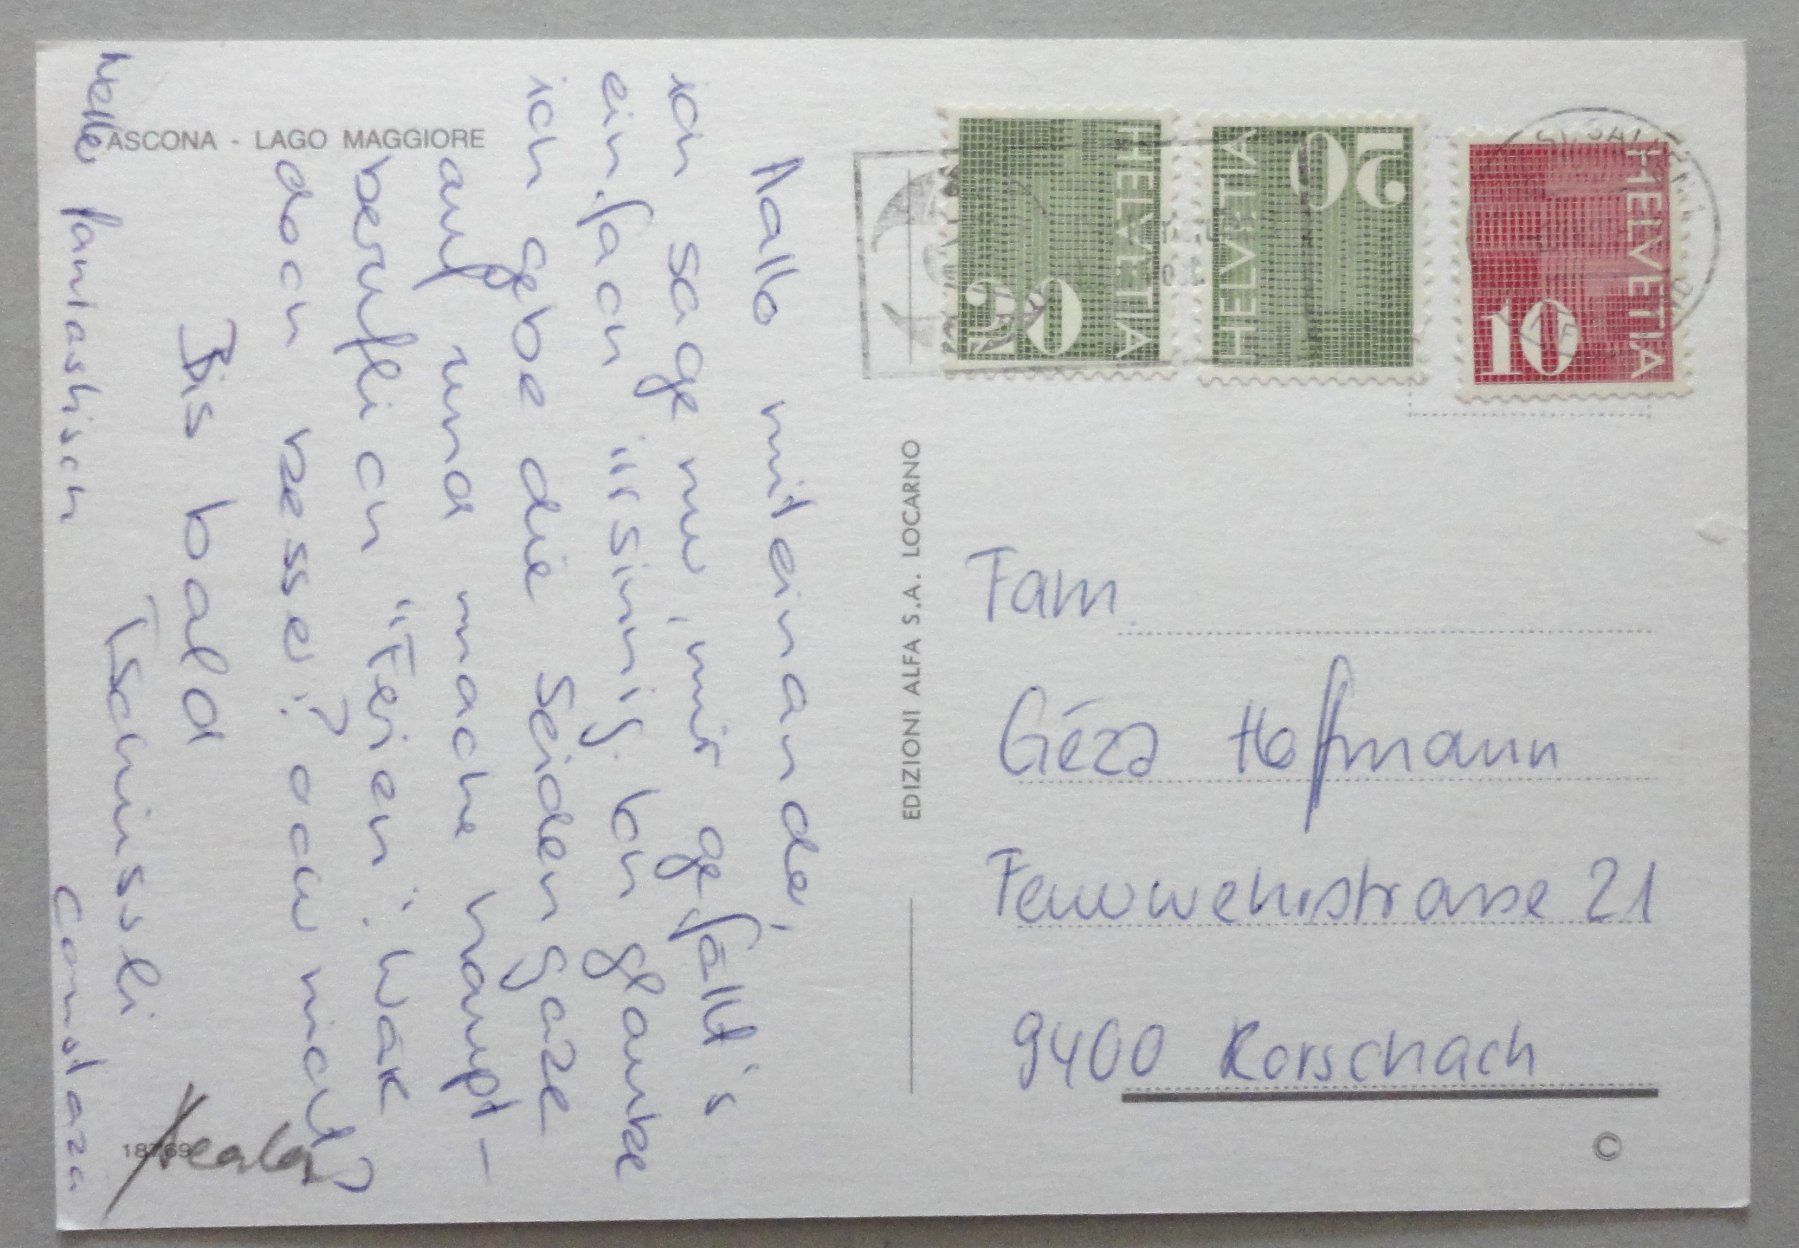 ASCONA - LAGO MAGGIORE
Hallo miteinander,
ich sage nur, mir gefällt's
einfach "irsinig. Ich glaube
ich gebe die Seidengaze
auf und mache haupt-
beruflich "Ferien". Wär
doch besser? oder nicht?
Bis bald
Tschüssli
Wetter fantastisch
Constaza
EDIZIONI ALFA S.A. LOCARNO
HELVETIA
20
HELVETIA
20
HELVETIA
10
Fam.
Géza Hoffmann
Feuerwehrstrasse 21
9400 Rorschach
©